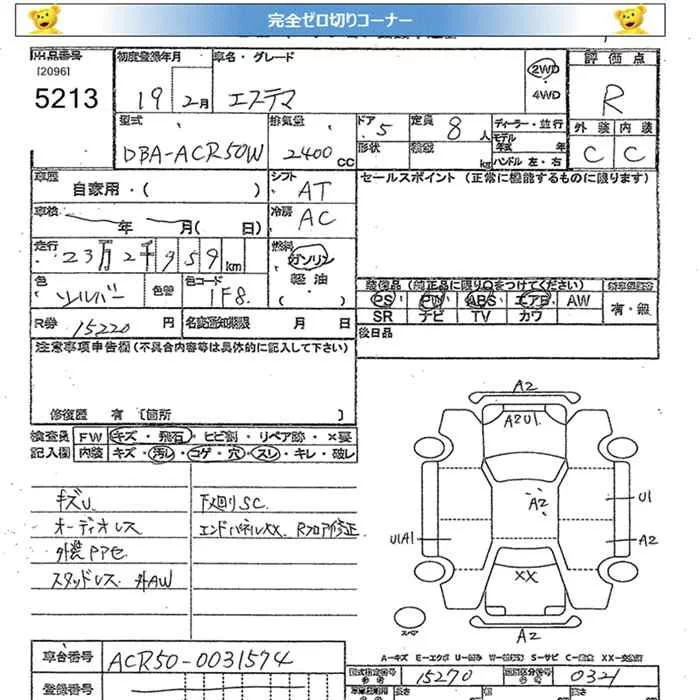 完全ゼロ切りコーナー
出品番号
[2096]
5213
初度登録年月
19 2月
車名・グレード
エスティマ
2WD
4WD
評価点
R
外装 内装
C C
型式
DBA-ACR50W
排気量
2400 cc
ドア 5
形状
定員 8人
積載 kg
ディーラー・並行
モデル年式 年
ハンドル 左・右
車歴
自家用・( )
シフト
AT
セールスポイント (正常に機能するものに限ります)
車検
年 月( 日)
冷房
AC
走行
23万2千959km
燃料
ガソリン
軽油
( )
色
シルバー
色替
色コード
1F8
装備品 (純正品に限り○をつけてください)
PS PW ABS エアB AW
SR ナビ TV カワ
有・無
R券 15220 円
名変通知期限 月 日
後日品
注意事項申告欄 (不具合内容等は具体的に記入して下さい)
修復歴 有 [箇所 ]
検査員 FW キズ・飛石・ヒビ割・リペア跡・×要
記入欄 内装 キズ・汚レ・コゲ・穴・スレ・キレ・破レ
キズU
下廻りSC.
オーディオレス
エンドパネルXX. Rフロア修正
外装PPセ
スタッドレス. 外AW
A2
A2U1.
A2
U1
U1A1
A2
XX
A2
スペア
A-キズ E-エクボ U-凹み W-波 S-サビ C-腐食 XX-交換済
車台番号 ACR50-0031574
型式指定番号 参考 15270
類別区分番号 参考 0321
登録番号
長さ